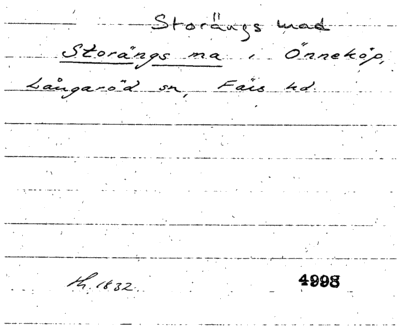 Storängs mad
Storängs ma i Önneköp,
Långaröd sn, Färs hd.
h. 1832. 4998